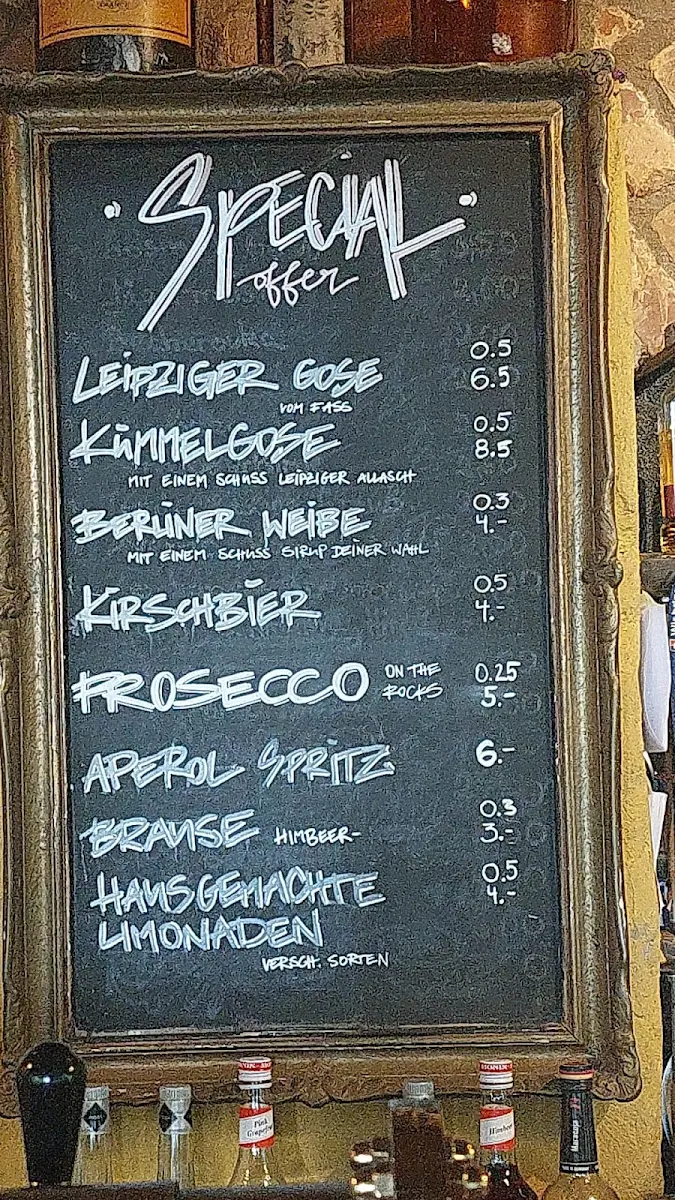 SPECIAL
offer
LEIPZIGER GOSE 0.5
VOM FASS 6.5
KÜMMELGOSE 0.5
8.5
MIT EINEM SCHUSS LEIPZIGER ALLASCH
BERLINER WEIßE 0.3
4.-
MIT EINEM SCHUSS SIRUP DEINER WAHL
KIRSCHBIER 0.5
4.-
PROSECCO ON THE ROCKS 0.25
5.-
APEROL SPRITZ 6.-
BRAUSE HIMBEER- 0.3
3.-
HAUSGEMACHTE 0.5
LIMONADEN 4.-
VERSCH. SORTEN
Pink
Grapefruit